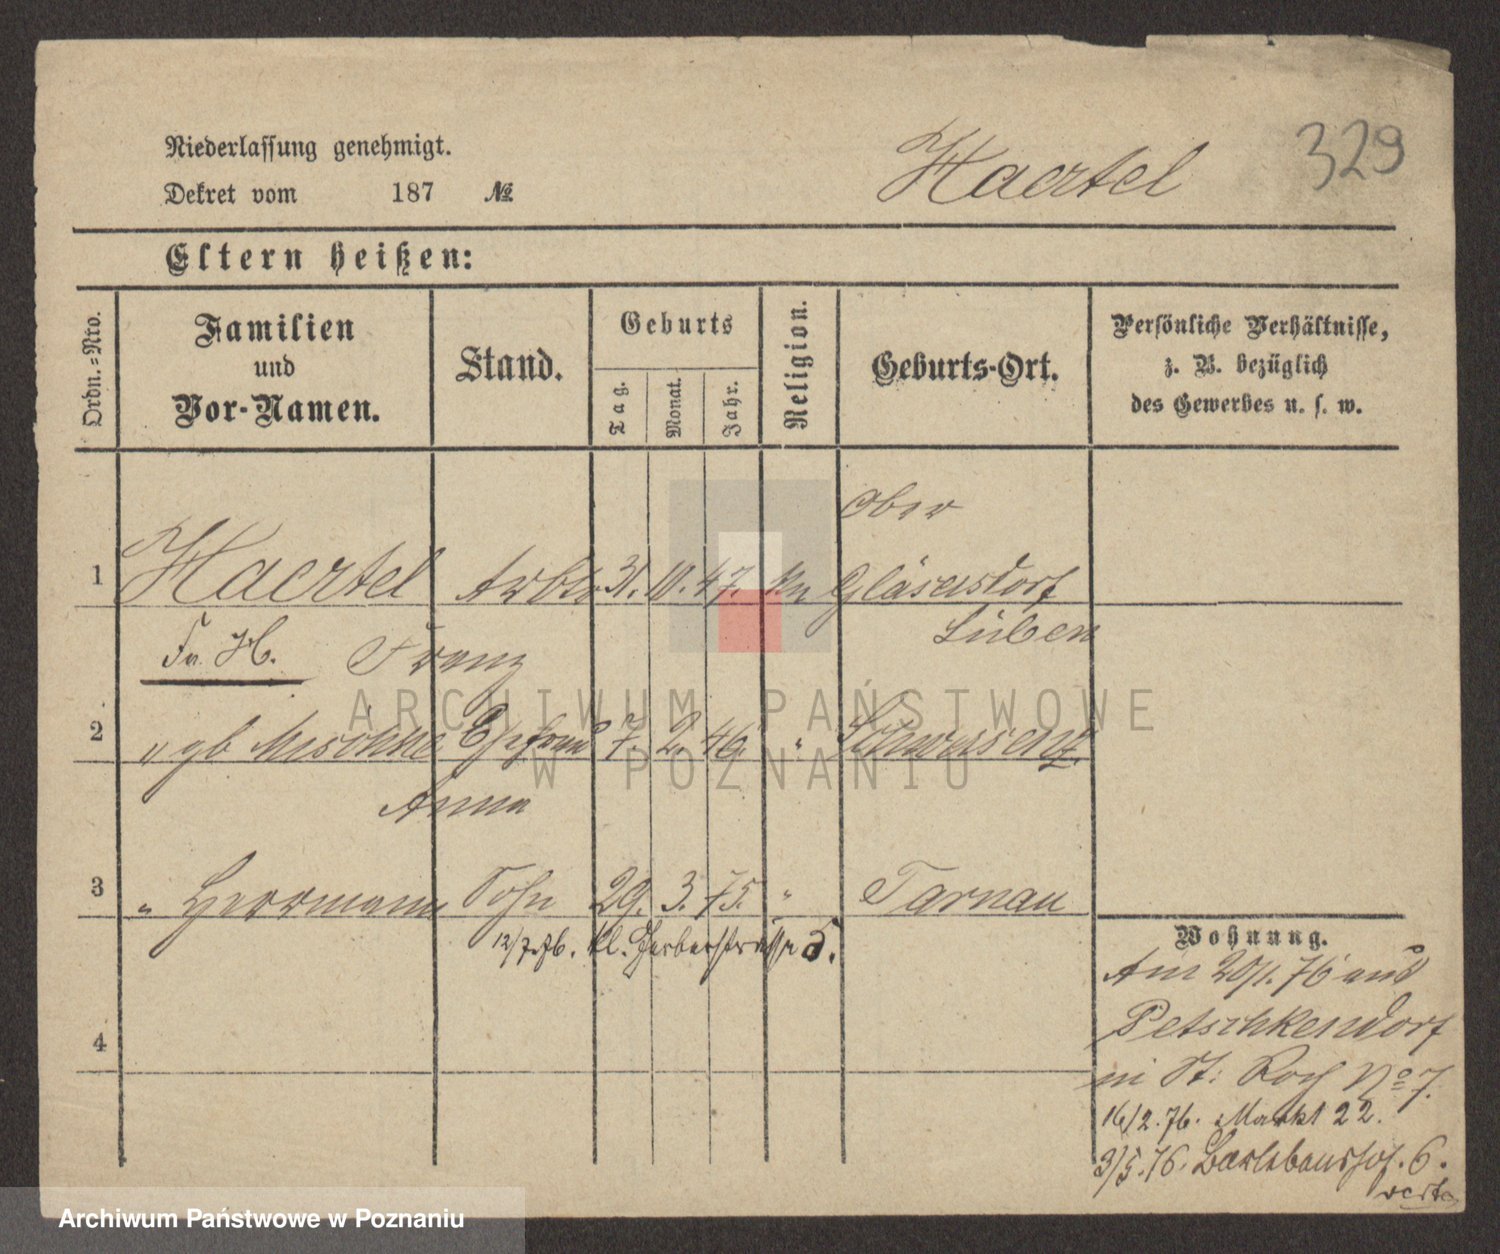 Niederlassung genehmigt.
Dekret vom 187 №
Haertel 329
Eltern heißen:
Ordn.=Nro.
Familien
und
Vor-Namen.
Stand.
Geburts
Tag.
Monat.
Jahr.
Religion.
Geburts-Ort.
Persönliche Verhältnisse,
z. B. bezüglich
des Gewerbes u. s. w.
Ober
1 Haertel Arbtr 31. 10. 47. Gläsersdorf
Lüben
H. Franz
2 " gb Meschke Ehefrau 7. 2. 46. " Schwersenz.
Anna
3 " Herrmann Sohn 29. 3. 75. " Tarnau
12/7.76. kl. Gerberstrasse
4
Wohnung.
Am 20/1. 76 aus
Petschkendorf
in St: Roch No 7.
16/2.76. Markt 22.
3/5.76. Barlebenshof. 6.
verte
ARCHIWUM PAŃSTWOWE
W POZNANIU
Archiwum Państwowe w Poznaniu